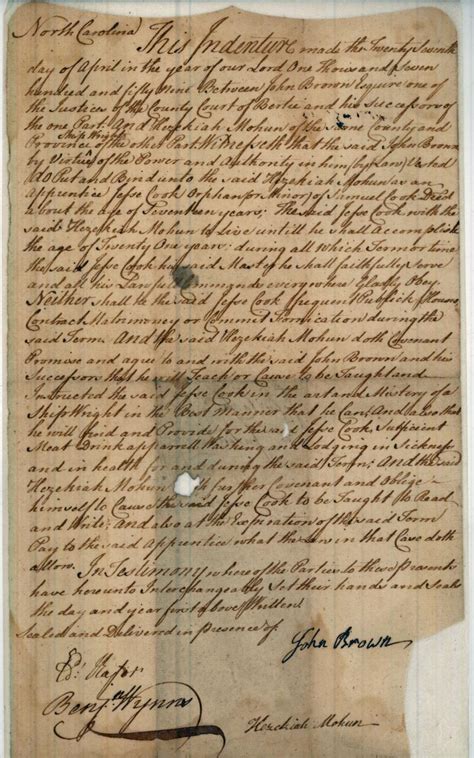 North Carolina This Indenture made the Twenty Seventh
day of April in the year of our Lord One Thousand Seven
hundred and fifty Nine Between John Brown Esquire one of
the Justices of the County Court of Bertie and his Successors of
the one Part And Hezekiah Mohun of the same County and
Province Ship Wright of the other Part Witnesseth that the said John Brown
by Virtue of the Power and Authority in him (by Law) Vested
Put and Bynd unto the said Hezekiah Mohun as an
Apprentice Jesse Cook Orphan (or Minor) of Samuel Cook
about the age of Seventeen years; The said Jesse Cook with the
said Hezekiah Mohun to Live untill he shall accomplish
the age of Twenty One years; during all Which Term or time
the said Jesse Cook his said Master he shall faithfully Serve
and all his Lawful Commands everywhere Gladly Obey
Neither shall the said Jesse Cook frequent Publick Houses
Contract Matrimoney or Commit Fornication during the
said Term. And the said Hezekiah Mohun doth Covenant
Promise and agree to and with the said John Brown and his
Successors that he will Teach or Cause to be Taught and
Instructed the said Jesse Cook in the art and Mistery of a
Ship Wright in the Best Manner that he Can; And also that
he will find and Provide for the said Jesse Cook Sufficient
Meat Drink apparrell Washing and Lodging in Sickness
and in health for and during the said Term; And the said
Hezekiah Mohun doth further Covenant and Oblige
himself to Cause the said Jesse Cook to be Taught to Read
and Write; And also at the Expiration of the said Term
Pay to the said Apprentice what the Law in that Case doth
allow. In Testimony where of the Parties to these Presents
have hereunto Interchangeably set their hands and Seals
the day and year first above Written
Sealed and Delivered in presence of
John Brown
Benj. Wynns
Hezekiah Mohun